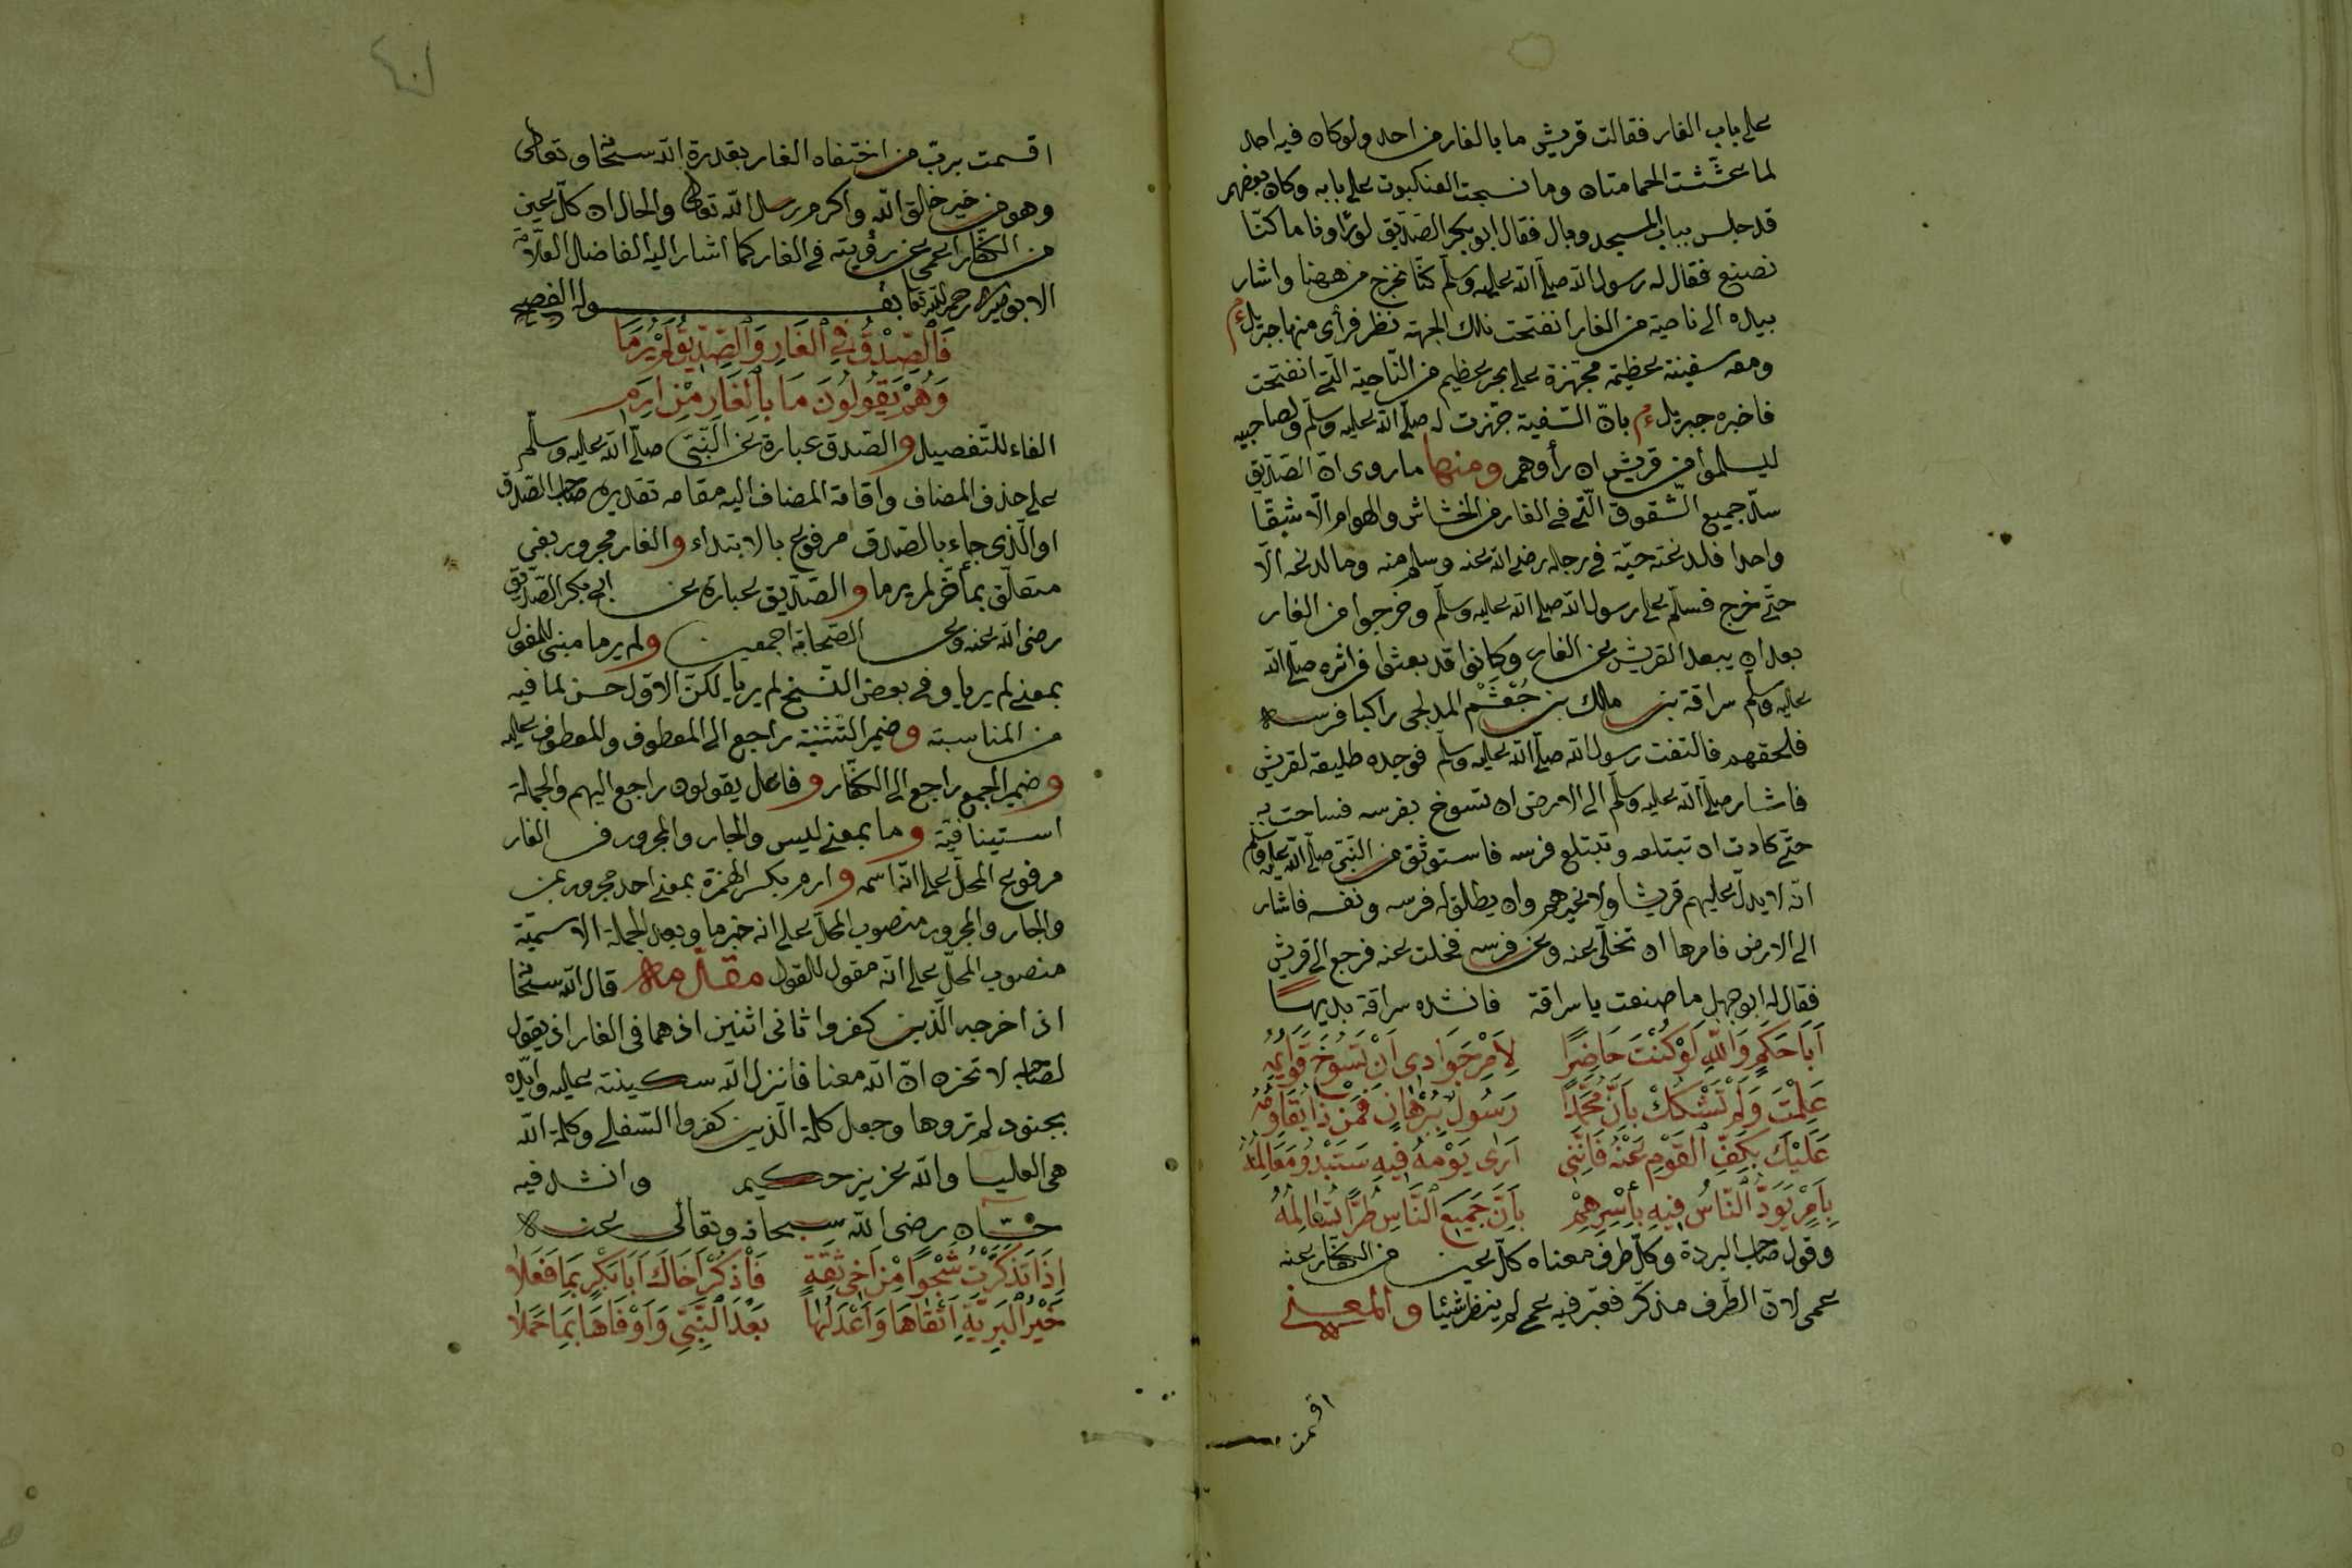 على باب الغار فقالت قريش ما بالغار من احد ولو كان فيه احد
لما عششت الحمامتان وما نسجت العنكبوت على بابه وكان بعضهم
قد جلس بباب المسجد وبال فقال ابو بكر الصديق لو رأونا ما كنا
نصنع فقال له رسول الله صلى الله عليه وسلم كنا نخرج من ههنا واشار
بيده الى ناحية من الغار انفتحت تلك الجهة نظر فرأى منها جبريل عم
ومعه سفينة عظيمة مجهزة على بحر عظيم من الناحية التى انفتحت
فاخبره جبريل عم بان السفينة جهزت له صلى الله عليه وسلم ولصاحبيه
ليسلموا من قريش ان رأوهم ومنها ما روى ان الصديق
سد جميع الشقوق التى فى الغار من الخشاش والهوام الا شقا
واحدا فلدغته حية فى رجله رضى الله عنه وسلم منه وما لدغه الا
حتى خرج فسلم على رسول الله صلى الله عليه وسلم وخرجوا من الغار
بعد ان يبعد القريش عن الغار وكانوا قد بعثوا فى اثره صلى الله
عليه وسلم سراقة بن مالك بن جُعْثُم المدلجى راكبا فرسه
فلحقهم فالتفت رسول الله صلى الله عليه وسلم فوجده طليعة لقريش
فاشار صلى الله عليه وسلم الى الارض ان تسوخ بفرسه فساحت به
حتى كادت ان تبتلعه وتبتلع فرسه فاستوثق من النبى صلى الله عليه وسلم
انه لا يدل عليهم قريشا ولا نخبرهم وان يطلق له فرسه ونفسه فاشار
الى الارض فامرها ان تخلى عنه وعن فرسه فخلت عنه فرجع الى قريش
فقال له ابو جهل ما صنعت يا سراقة فانشده سراقة بديها
اَبَا حَكَمٍ وَاللّٰهِ لَوْ كُنْتَ حَاضِرًا لِاَمْرِ جَوَادِى اَنْ تَسُوخَ قَوَايِمُهُ
عَلِمْتَ وَلَمْ تَشْكُكْ بِاَنَّ مُحَمَّدًا رَسُولٌ بِبُرْهَانٍ فَمَنْ ذَا يُقَاوِمُهُ
عَلَيْكَ بِكَفِّ الْقَوْمِ عَنْهُ فَاِنَّنِى اَرٰى يَوْمَهُ فِيهِ سَتَبْدُو مَعَالِمُهُ
بِاَمْرٍ يَوَدُّ النَّاسُ فِيهِ بِأَسْرِهِمْ بِاَنَّ جَمِيعَ النَّاسِ طُرًّا تُسَالِمُهُ
وقول صاحب البردة وكل طرف معناه كل عين من الكفار عنه
عمى لان الطرف مذكر فعبر فيه عمى لم ينظر شيئا والمعنى
اقسمت
اقسمت برب من اختفاه الغار بقدرة الله سبحانه وتعالى
وهو من خير خالق الله واكرم رسل الله تعالى والحال ان كل عين
من الكفار اعمى عن رؤيته فى الغار كما اشار اليه الفاضل العلامة
الابوصيرى رحمه الله تعالى بقوله الفصيح
فَالصِّدْقُ فِى الْغَارِ وَالصِّدِّيقُ لَمْ يُرَمَا
وَهُمْ يَقُولُونَ مَا بِالْغَارِ مِنْ اِرَمِ
الفاء للتفصيل والصدق عبارة عن النبى صلى الله عليه وسلم
على حذف المضاف واقامة المضاف اليه مقامه تقديره صاحب الصدق
او الذى جاء بالصدق مرفوع بالابتداء والغار مجرور بفى
متعلق بمأخر لم يرما والصديق عبارة عن ابى بكر الصديق
رضى الله عنه وعن الصحابة اجمعين ولم يرما مبنى للمفعول
بمعنى لم يريا وفى بعض النسخ لم يريا لكن الاول حسن لما فيه
من المناسبة وضمير التثنية راجع الى المعطوف والمعطوف عليه
وضمير الجمع راجع الى الكفار وفاعل يقولون راجع اليهم والجملة
استينافية وما بمعنى ليس والجار والمجرور فى الغار
مرفوع المحل على انه اسمه وارم بكسر الهمزة بمعنى احد مجرور بمن
والجار والمجرور منصوب المحل على انه خبر ما وبعد الجملة الاسمية
منصوب المحل على انه مقول للقول مقدمه قال الله سبحانه
اذ اخرجه الذين كفروا ثانى اثنين اذ هما فى الغار اذ يقول
لصاحبه لا تحزن ان الله معنا فانزل الله سكينته عليه وايده
بجنود لم تروها وجعل كلمة الذين كفروا السفلى وكلمة الله
هى العليا والله عزيز حكيم وانشد فيه
حسان رضى الله سبحانه وتعالى عنه
اِذَا تَذَكَّرْتَ شَجْوًا مِنْ اَخِى ثِقَةٍ فَاذْكُرْ اَخَاكَ اَبَا بَكْرٍ بِمَا فَعَلَا
خَيْرُ الْبَرِيَّةِ اَتْقَاهَا وَاَعْدَلُهَا بَعْدَ النَّبِىِّ وَاَوْفَاهَا بِمَا حَمَلَا